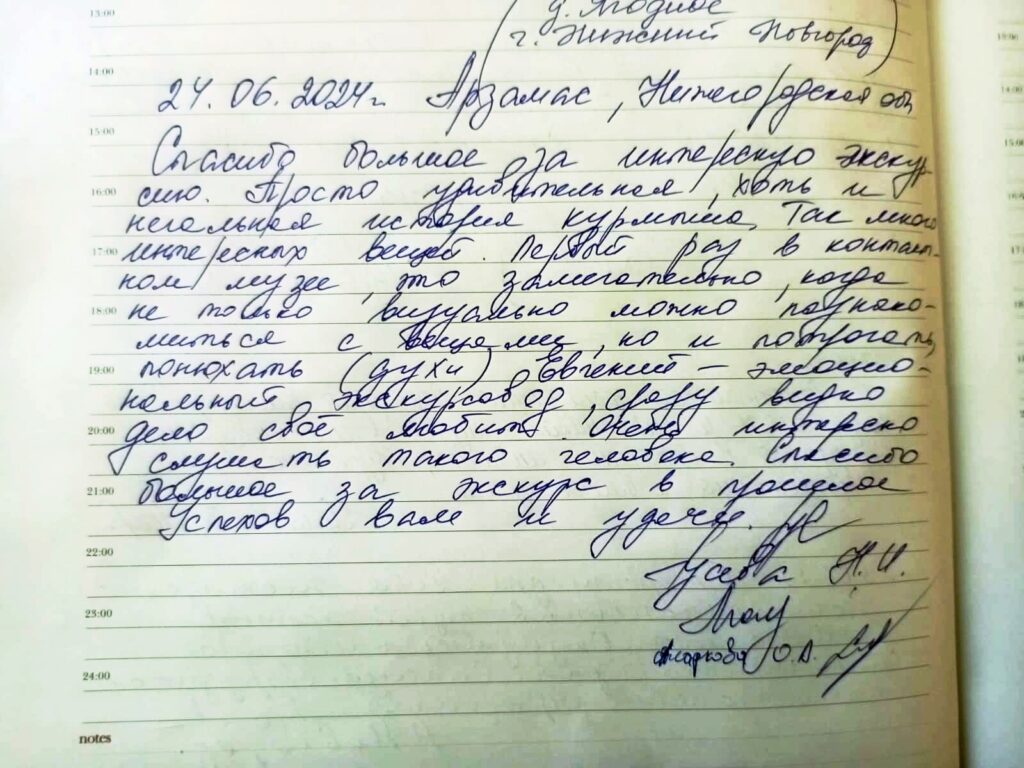 13:00
д. Ягодное
г. Нижний Новгород)
14:00
24.06.2024г. Арзамас, Нижегородская обл
15:00
Спасибо большое за интересную экскур
16:00
сию. Просто удивительная, хоть и
печальная история курмыша. Так много
17:00
интересных вещей. Первый раз в контакт-
ном музее, это замечательно, когда
18:00
не только визуально можно познако-
миться с вещами, но и потрогать,
19:00
понюхать (духи). Евгений – эмоцио-
нальный экскурсовод, сразу видно
20:00
дело своё любит. Очень интересно
слушать такого человека. Спасибо
21:00
большое за экскурс в прошлое
Успехов вам и удачи.
22:00
Н.И.
23:00
Маркова О.А.
24:00
notes